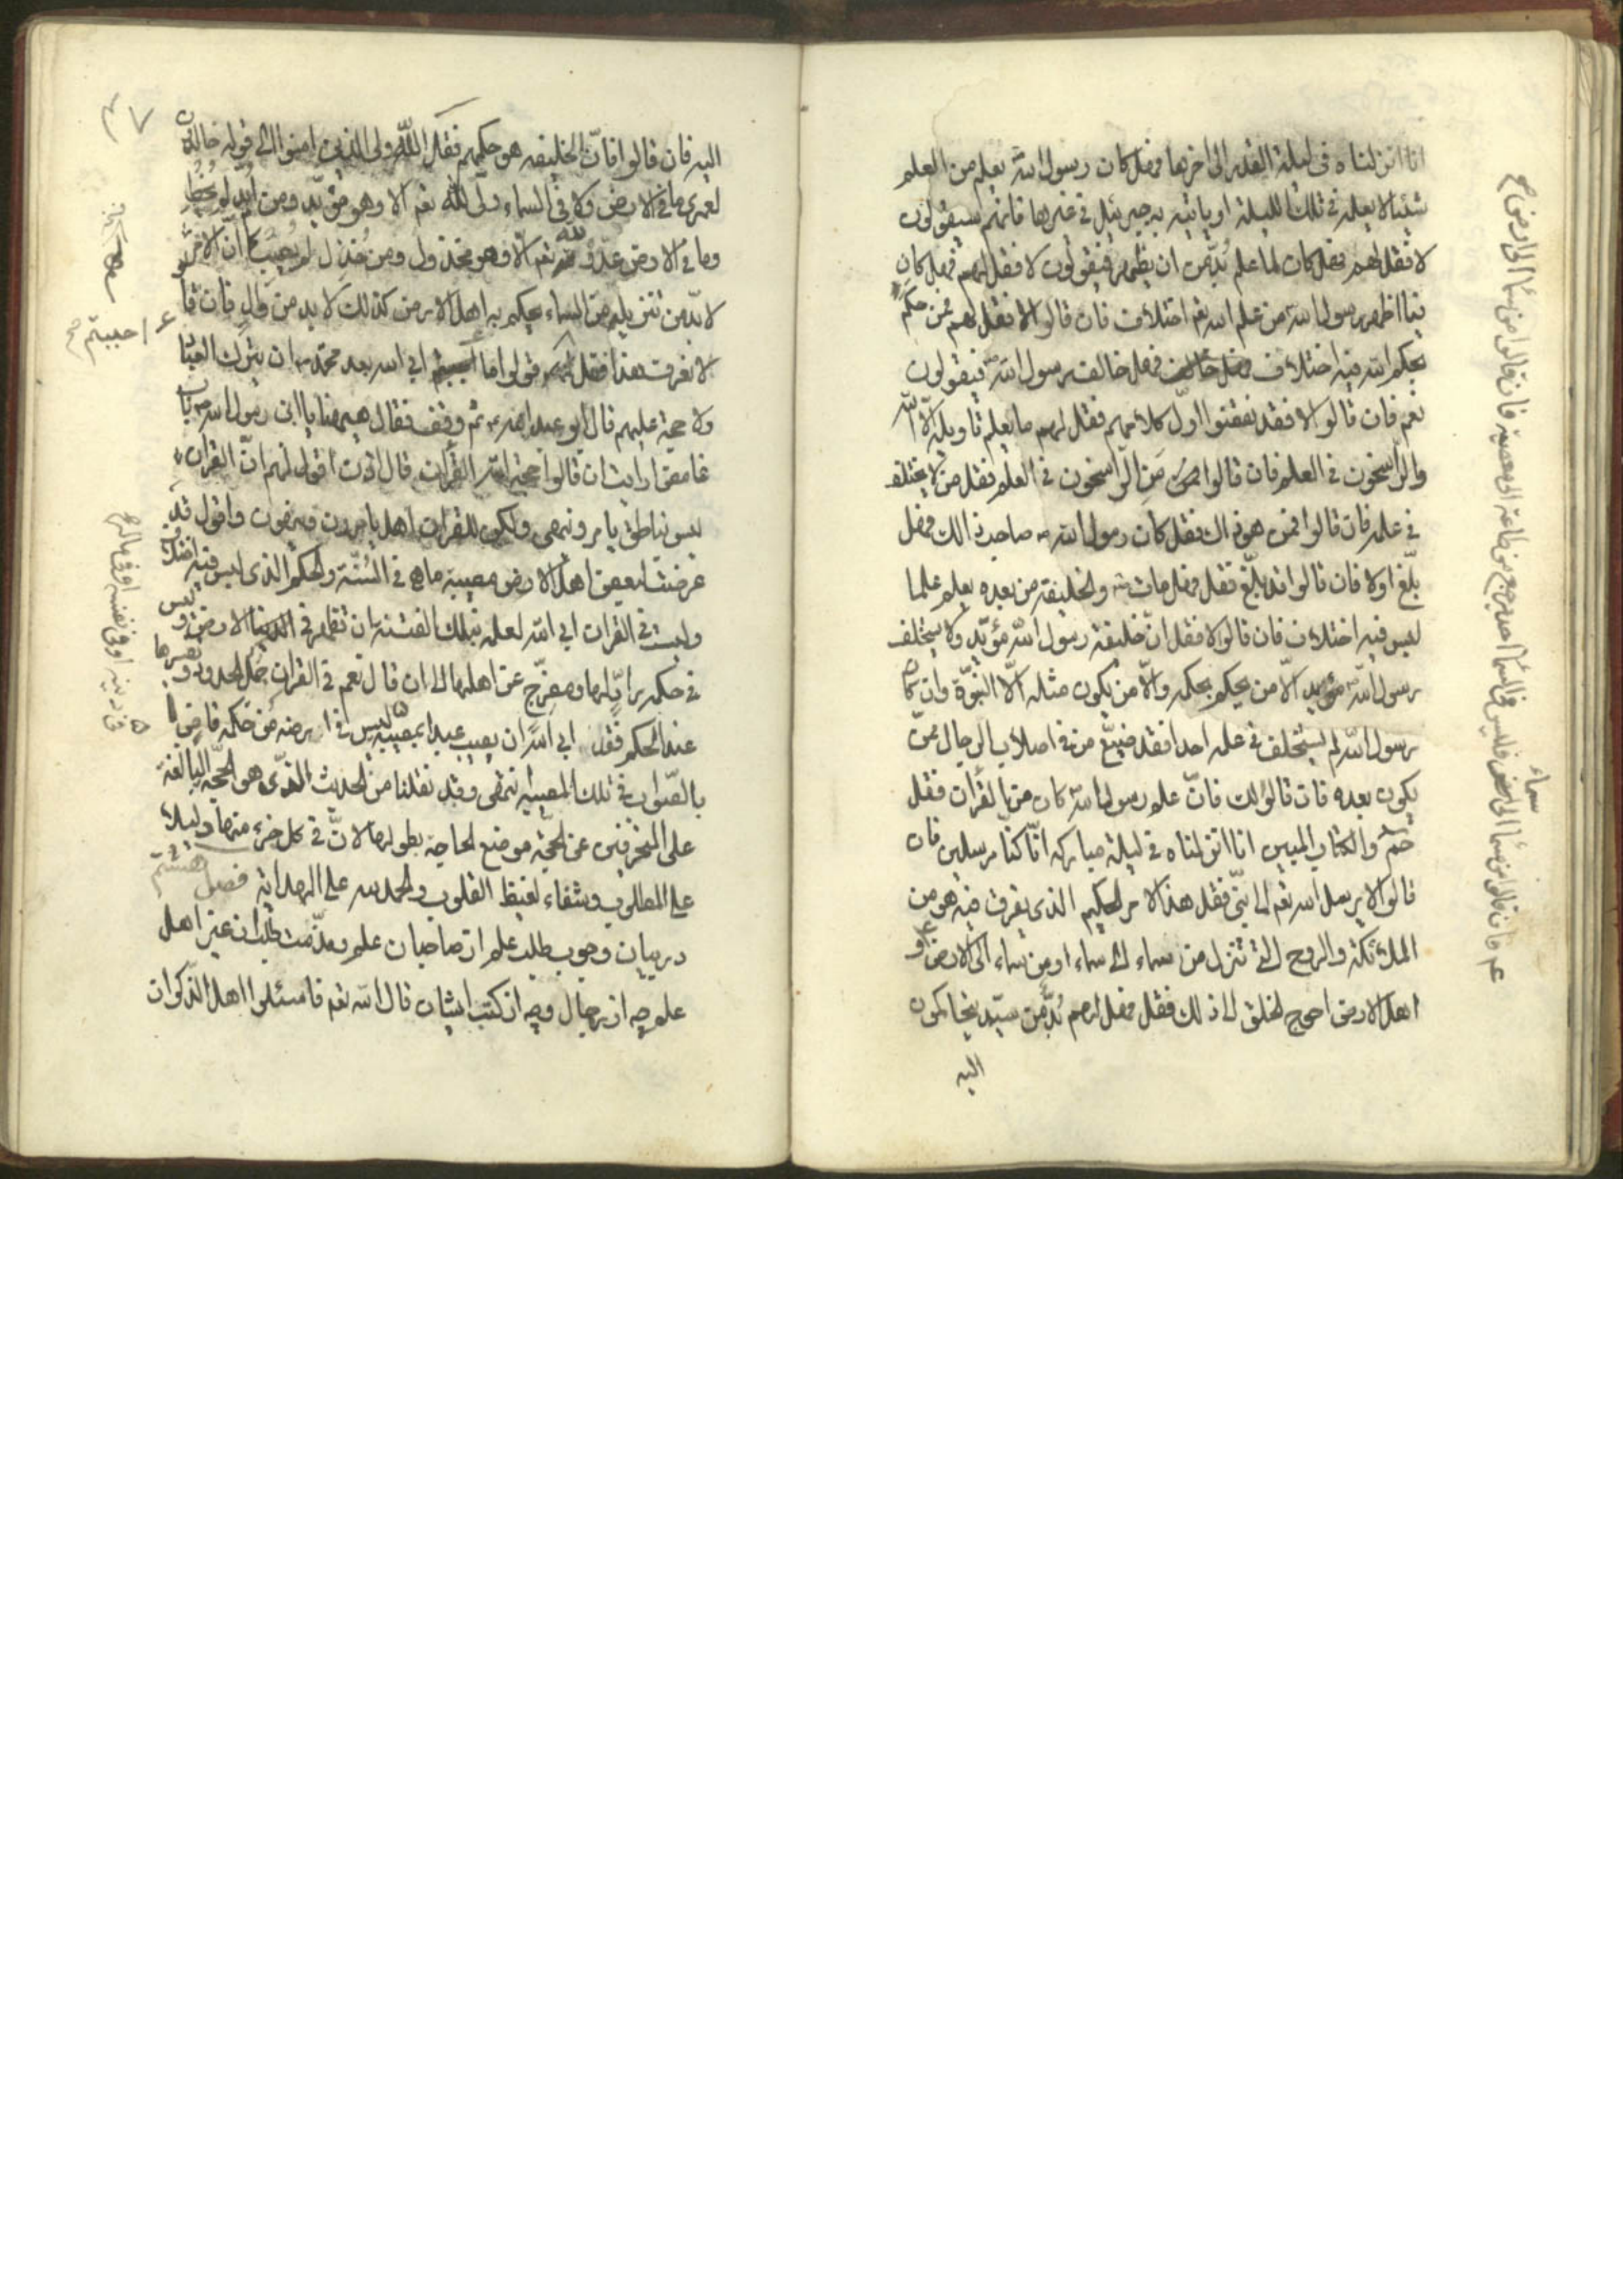 انا انزلناه فى ليلة القدر الى اخرها فهل كان رسول الله يعلم من العلم
شيئا لا يعلمه فى تلك الليلة او ياتيه به جبرئيل فى غيرها فانهم سيقولون
لا فقل لهم فهل كان لما علم بدّ من ان يظهر فيقولون لا فقل لهم فهل كان
فيما اظهر رسول الله من علم الله تع اختلاف فان قالوا لا فقل لهم فمن حكم
بحكم الله فيه اختلاف فهل خالف رسول الله فيقولون
نعم فان قالوا لا فقد نقضوا اوّل كلامهم فقل لهم ما يعلم تاويله الّا الله
والرّاسخون فى العلم فان قالوا من الرّاسخون فى العلم فقل من لا يختلف
فى علمه فان قالوا فمن هو ذاك فقل كان رسول الله صاحب ذالك فهل
بلّغ اولا فان قالوا قد بلّغ فقل فهل مات والخليفة من بعده يعلم علما
ليس فيه اختلاف فان قالوا لا فقل انّ خليفة رسول الله مؤيّد ولا يستخلف
رسول الله الّا من يحكم بحكمه والّا من يكون مثله الّا النبوّة وان كان
رسول الله لم يستخلف فى علمه احدا فقد ضيّع من فى اصلاب الرجال ممّن
يكون بعده فان قالوا لك فانّ علم رسول الله كان من القران فقل
حم والكتاب المبين انا انزلناه فى ليلة مباركه انّا كنا مرسلين فان
قالوا لا يرسل الله تع الا الى نبىّ فقل هذا الامر الحكيم الذى يفرق فيه هو من
الملائكة والروح التى تنزل من سماء الى سماء او من سماء الى الارض
اهل الارض احوج الخلق الى ذلك فقل فهل لهم بُدٌّ من سيّد يتحاكمون
اليه
اليه فان قالوا فانّ الخليفه هو حكمهم فقل الله ولى الذين امنوا الى قوله خالدون
لعمرى ما فى الارض ولا فى السماء ولىّ لله تع الا وهو مؤيّد ومن اُيّد لم يُخطِ
وما فى الارض عدوّ لله تع الّا وهو مخذول ومن خُذل لم يُصِب كما انّ الامر
لا بدّ من تنزيله من السماء يحكم به اهل الارض كذلك لا بد من والٍ فان قالوا
لا نعرف هذا فقل قولوا ما احببتم ابى الله بعد محمّد ان يترك العباد
ولا حجة عليهم قال ابو عبد الله ثم وقف فقال هيهنا يا ابن رسول الله باب
غامض ارايت ان قالوا حجة الله القران قال اذن اقول لهم انّ القران
ليس بناطق يامر وينهى ولكن للقران اهل يامرون وينهون واقول قد
عرضت لبعض اهل الارض مصيبة ماهى فى السُّنّة والحكم الذى ليس فيه اختلاف
وليست فى القران ابى الله لعلمه بتلك الفتنة ان تظهر فى الارض وليس
فى حكمه رادّ لها ومفرّج عن اهلها الى ان قال نعم فى القران جُمَل الحدود وتفسيرها
عند الحكم فقل ابى الله ان يصيب عبدا بمصيبة ليس فى ارضه من حكمه قاضٍ
بالصّواب فى تلك المصيبة انتهى وقد نقلنا من الحديث الذى هو الحجّة البالغة
على المنحرفين عن الحجّة موضع الحاجة بطولها لانّ فى كل جزء منها دليلا
على المطلوب وشفاء لغيظ القلوب والحمد لله على الهداية فصل هشتم
در بيان وجوب طلب علم از صاحبان علم ومذمّت طلب از غير اهل
علم چه از رجال وچه از كتب ايشان قال الله تع فاسئلوا اهل الذّكر ان
احببتم صح
فى دينه او فى نفسه او فى ماله